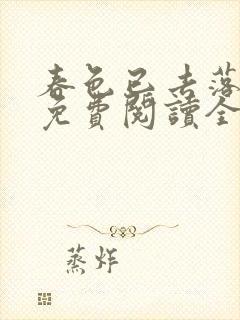 春色已去落
免費閱讀全
蒸炸